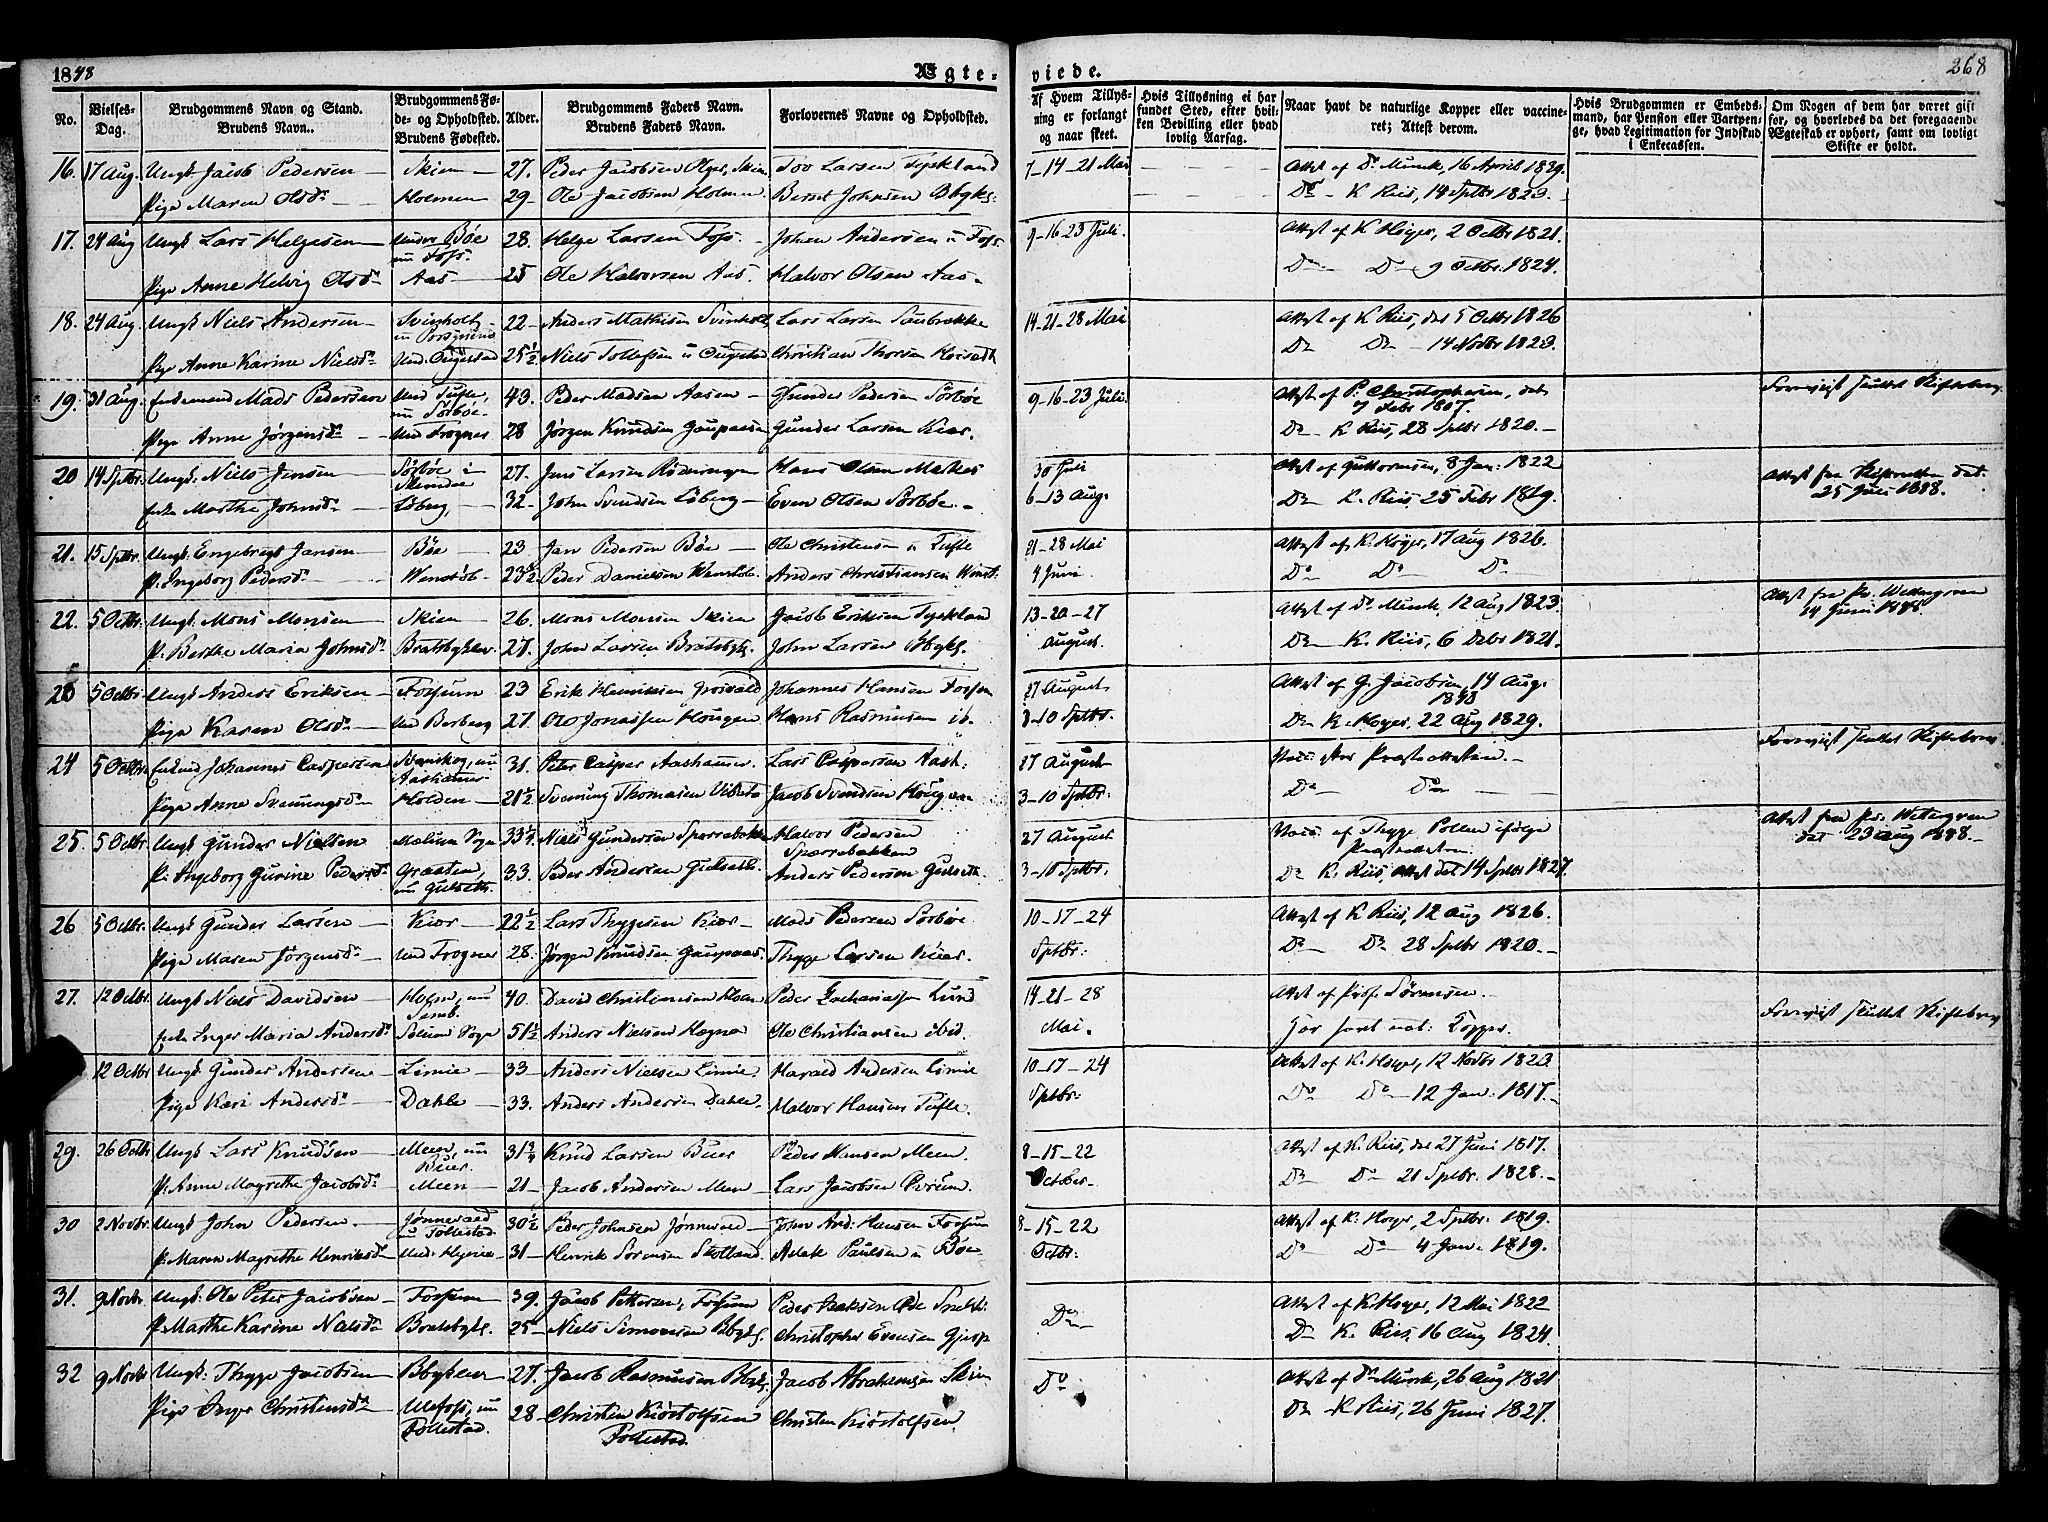 1848 Ægte-
viede. 268
No. Vielses-Dag. Brudgommens Navn og Stand. Brudens Navn.. Brudgommens Fø-de- og Opholdsted. Brudens Fødested. Alder. Brudgommens Faders Navn. Brudens Faders Navn. Forlovernes Navne og Opholdsted.
Af Hvem Tillys-ning er forlangt og naar skeet. Hvis Tillysning ei har fundet Sted, efter hvil-ken Bevilling eller hvad lovlig Aarsag. Naar havt de naturlige Kopper eller vaccine-ret; Attest derom. Hvis Brudgommen er Embeds-mand, har Pension eller Vartpen-ge, hvad Legitimation for Indskud i Enkecassen. Om Nogen af dem har været gift for, og hvorledes da det foregaaende Ægteskab er ophørt, samt om lovligt Skifte er holdt.
16. 17 Aug. Ungk. Jacob Pedersen Skien 27. Peder Jacobsen Skien Tov Larsen Tyskland 7-14-21 Mai Attest af Dr. Munk, 16 April 1839.
Pige Maren Olsdr Holmen 29 Ole Jacobsen Holmen Berset Johnsen Bbgkl: Do K. Riis, 14 Sptbr 1823.
17. 24 Aug Ungk Lars Helgesen Under Bøe nu Foss. 28. Helge Larsen Foss. Johan Andersen Foss 9-16-23 Juli. Attest af K. Høyer, 2 Octbr 1821.
Pige Anne Helvig Olsdr Aas 25 Ole Halvorsen Aas Halvor Olsen Aas Do Do 9 Octbr. 1824.
18. 24 Aug. Ungk Niels Andersen Svinholt 22 Anders Mathisen Svinholt Lars Larsen 14-21-28 Mai Attest af K. Riis, des 5 Octbr 1826
Pige Anne Karine Nielsdr 25½ Niels Tollefsen Christian Thorsen Do Do 14 Novbr 1823.
19. 31 Aug. Enkemand Mads Pedersen Und Tufte, nu Sørbøe 43. Peder Madsen Aasen Gunder Pedersen Sørbøe 9-16-23 Juli. Attest af P. Christophersen, des 7 Febr 1807. Foreviist Skiftebrev
Pige Anne Jørgensdr Und Frogner 28 Jørgen Knudsen Gaupaasen Gunder Larsen Kiær. Do K. Riis, 28 Sptbr 1820.
20 14 Sptbr. Ungk. Niels Jensen Sørbøe 27. Jens Larsen Hans Olsen 30 Juli Attest af Guttormsen, 8 Jan: 1822 Attest fra Skifteretten dat. 25 Juli 1848.
Enke Marthe Johnsdr Løberg 32. John Svendsen Løberg Even Olsen Sørbøe. 6-13 Aug. Do K. Riis 25 Febr 1819.
21. 15 Sptbr. Ungk. Engebregt Jansen Bøe 23 Jan Pedersen Bøe Ole Christensen Tufte 21-28 Mai Attest af K. Høyer, 17 Aug 1826.
P. Ingeborg Pedersdr Wenstøb 23½ Peder Danielsen Wenstøb. Anders Christiansen Wenst: 4 Juni Do Do Do
22. 5 Octbr. Ungk. Mons Monsen Skien 26. Mons Monsen Skien Jacob Eriksen Tyskland 13-20-27 Attest af Dr. Munk, 12 Aug 1823. Attest fra Pr. Wettergren 14 Juni 1848.
P. Berthe Maria Johnsdr Bratsbgklev 27. John Larsen Bratsbgkl. John Larsen Bbgkl. August. Do K. Riis, 6 Decbr 1821.
23 5 Octbr. Ungk Anders Eriksen Fossum 23 Erik Henriksen Johannes Hansen Fossum 27 August Attest af G. Jacobsen, 14 Aug: 1848
Pige Karen Olsdr Und Borberg 27. Ole Jonassen Hougen Hans Rasmusen ib. 3-10 Sptbr. Do K. Høyer, 22 Aug 1829.
24 5 Octbr. Johannes Caspersen nu Aashammer 31. Peter Casper Aashammer. Lars Caspersen Aash: 27 August Vacc. efter Præsteattesten. Foreviist Skiftebrev
Pige Anne Svenningsdr Holden 21½ Svenning Thomasen Jacob Svendsen Hougen 3-10 Sptbr. Do Do
25. 5 Octbr. Ungk Gunder Nielsen Melum Sogn 33¼ Niels Gundersen Sparrebakke Halvor Pedersen Sparrebakken 27 August Vacc. af Thyge Pollen ifølge Præsteattesten. Attest fra Pr. Wettergren dat 23 Aug 1848.
P. Ingeborg Gurine Pedersdr Graaten, nu Gulseth. 33. Peder Andersen Gulseth. Anders Pedersen Gulseth. 3-10 Sptbr. Do K. Riis, Attest dat 14 Sptbr 1827.
26 5 Octbr. Ungk Gunder Larsen Kiær 22½ Lars Thygesen Kiær Mads Pedersen Sørbøe 10-17-24 Attest af K Riis, 12 Aug 1826.
Pige Maren Jørgensdr Und Frogner 28. Jørgen Knudsen Gaupaas. Thyge Larsen Kiær. Sptbr. Do Do 28 Sptbr 1820.
27. 12 Octbr. Ungk Niels Davidsen 40. David Christiansen Peder Zachariassen Lund 14-21-28 Attest af Prof. Sørensen. Foreviist Skiftebrev
Enke Inger Maria Andersdr Solum Sogn 51½ Anders Nielsen Hogna Ole Christiansen ibid. Mai. har havt nat: Kopper.
12 Octbr Ungk Gunder Andersen Limie 33 Anders Nielsen Limie. Harald Andersen Limie 10-17-24 Attest af K. Høyer, 12 Novbr 1823.
Pige Kari Andersdr Dahle 33. Anders Andersen Dahle. Halvor Hansen Tufte. Sptbr. Do Do 12 Jan: 1817.
29. 26 Octbr Ungk Lars Knudsen Meen, nu Buer. 31¾ Knud Larsen Buer Peder Hansen Meen. 8-15-22 Attest af K. Riis, des 27 Juni 1817.
P. Anne Magrethe Jacobsdr Meen 21 Jacob Andersen Meen Lars Jacobsen October. Do Do 21 Sptbr. 1828.
30 2 Novbr. Ungk. John Pedersen. Jønnevald nu Follestad. 30½ Peder Johnsen Jønnevald John And: Hansen Fossum 8-15-22 Attest af K: Høyer, 2 Sptbr. 1819.
P. Maren Magrethe Henriksdr 31 Henrik Sørensen Skotland. Aslak Paulsen Bøe Octbr. Do Do 4 Jan: 1819.
31. 9 Novbr. Ungk: Ole Peter Jacobsen Fossum 39. Jacob Pettersen, Fossum Peder Isaksen Do Attest af K. Høyer, 12 Mai 1822
P. Marthe Karine Nielsdr Bratsbgkl. 25 Niels Simonsen Bbgkl. Christopher Evensen Gjerp Do K. Riis, 16 Aug 1824.
32 9 Novbr Ungk: Thyge Jacobsen Bbgklev 27. Jacob Rasmusen Bbgkl. Jacob Abrahamsen Skien Do Attest af Dr. Munk, 26 Aug 1821
Pige Inger Christensdr Ulefoss, nu Follestad. 28 Christen Kiøstolfsen Follestad. Christen Kiøstolfsen. Do K Riis, 26 Juni 1827.